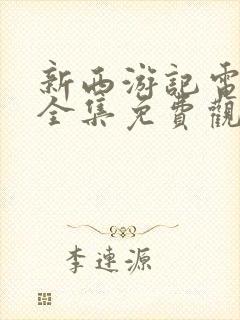 新西游記電
全集免費觀
李連源